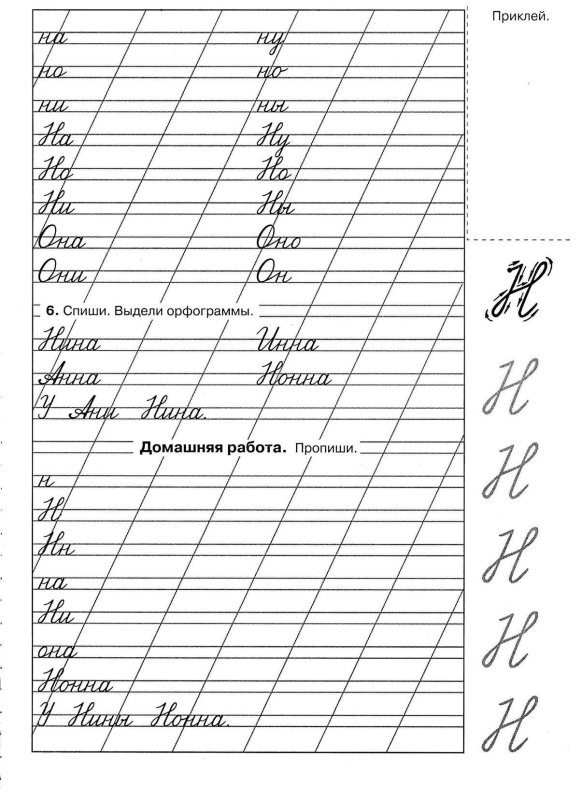 Приклей.
на ну
но но
ни ны
На Ну
Но Но
Ни Ны
Она Оно
Они Он
6. Спиши. Выдели орфограммы.
Нина Инна
Анна Нонна
У Ани Нина.
Домашняя работа. Пропиши.
н
Н
Нн
на
Ни
она
Нонна
У Нины Нонна.
Н
Н
Н
Н
Н
Н